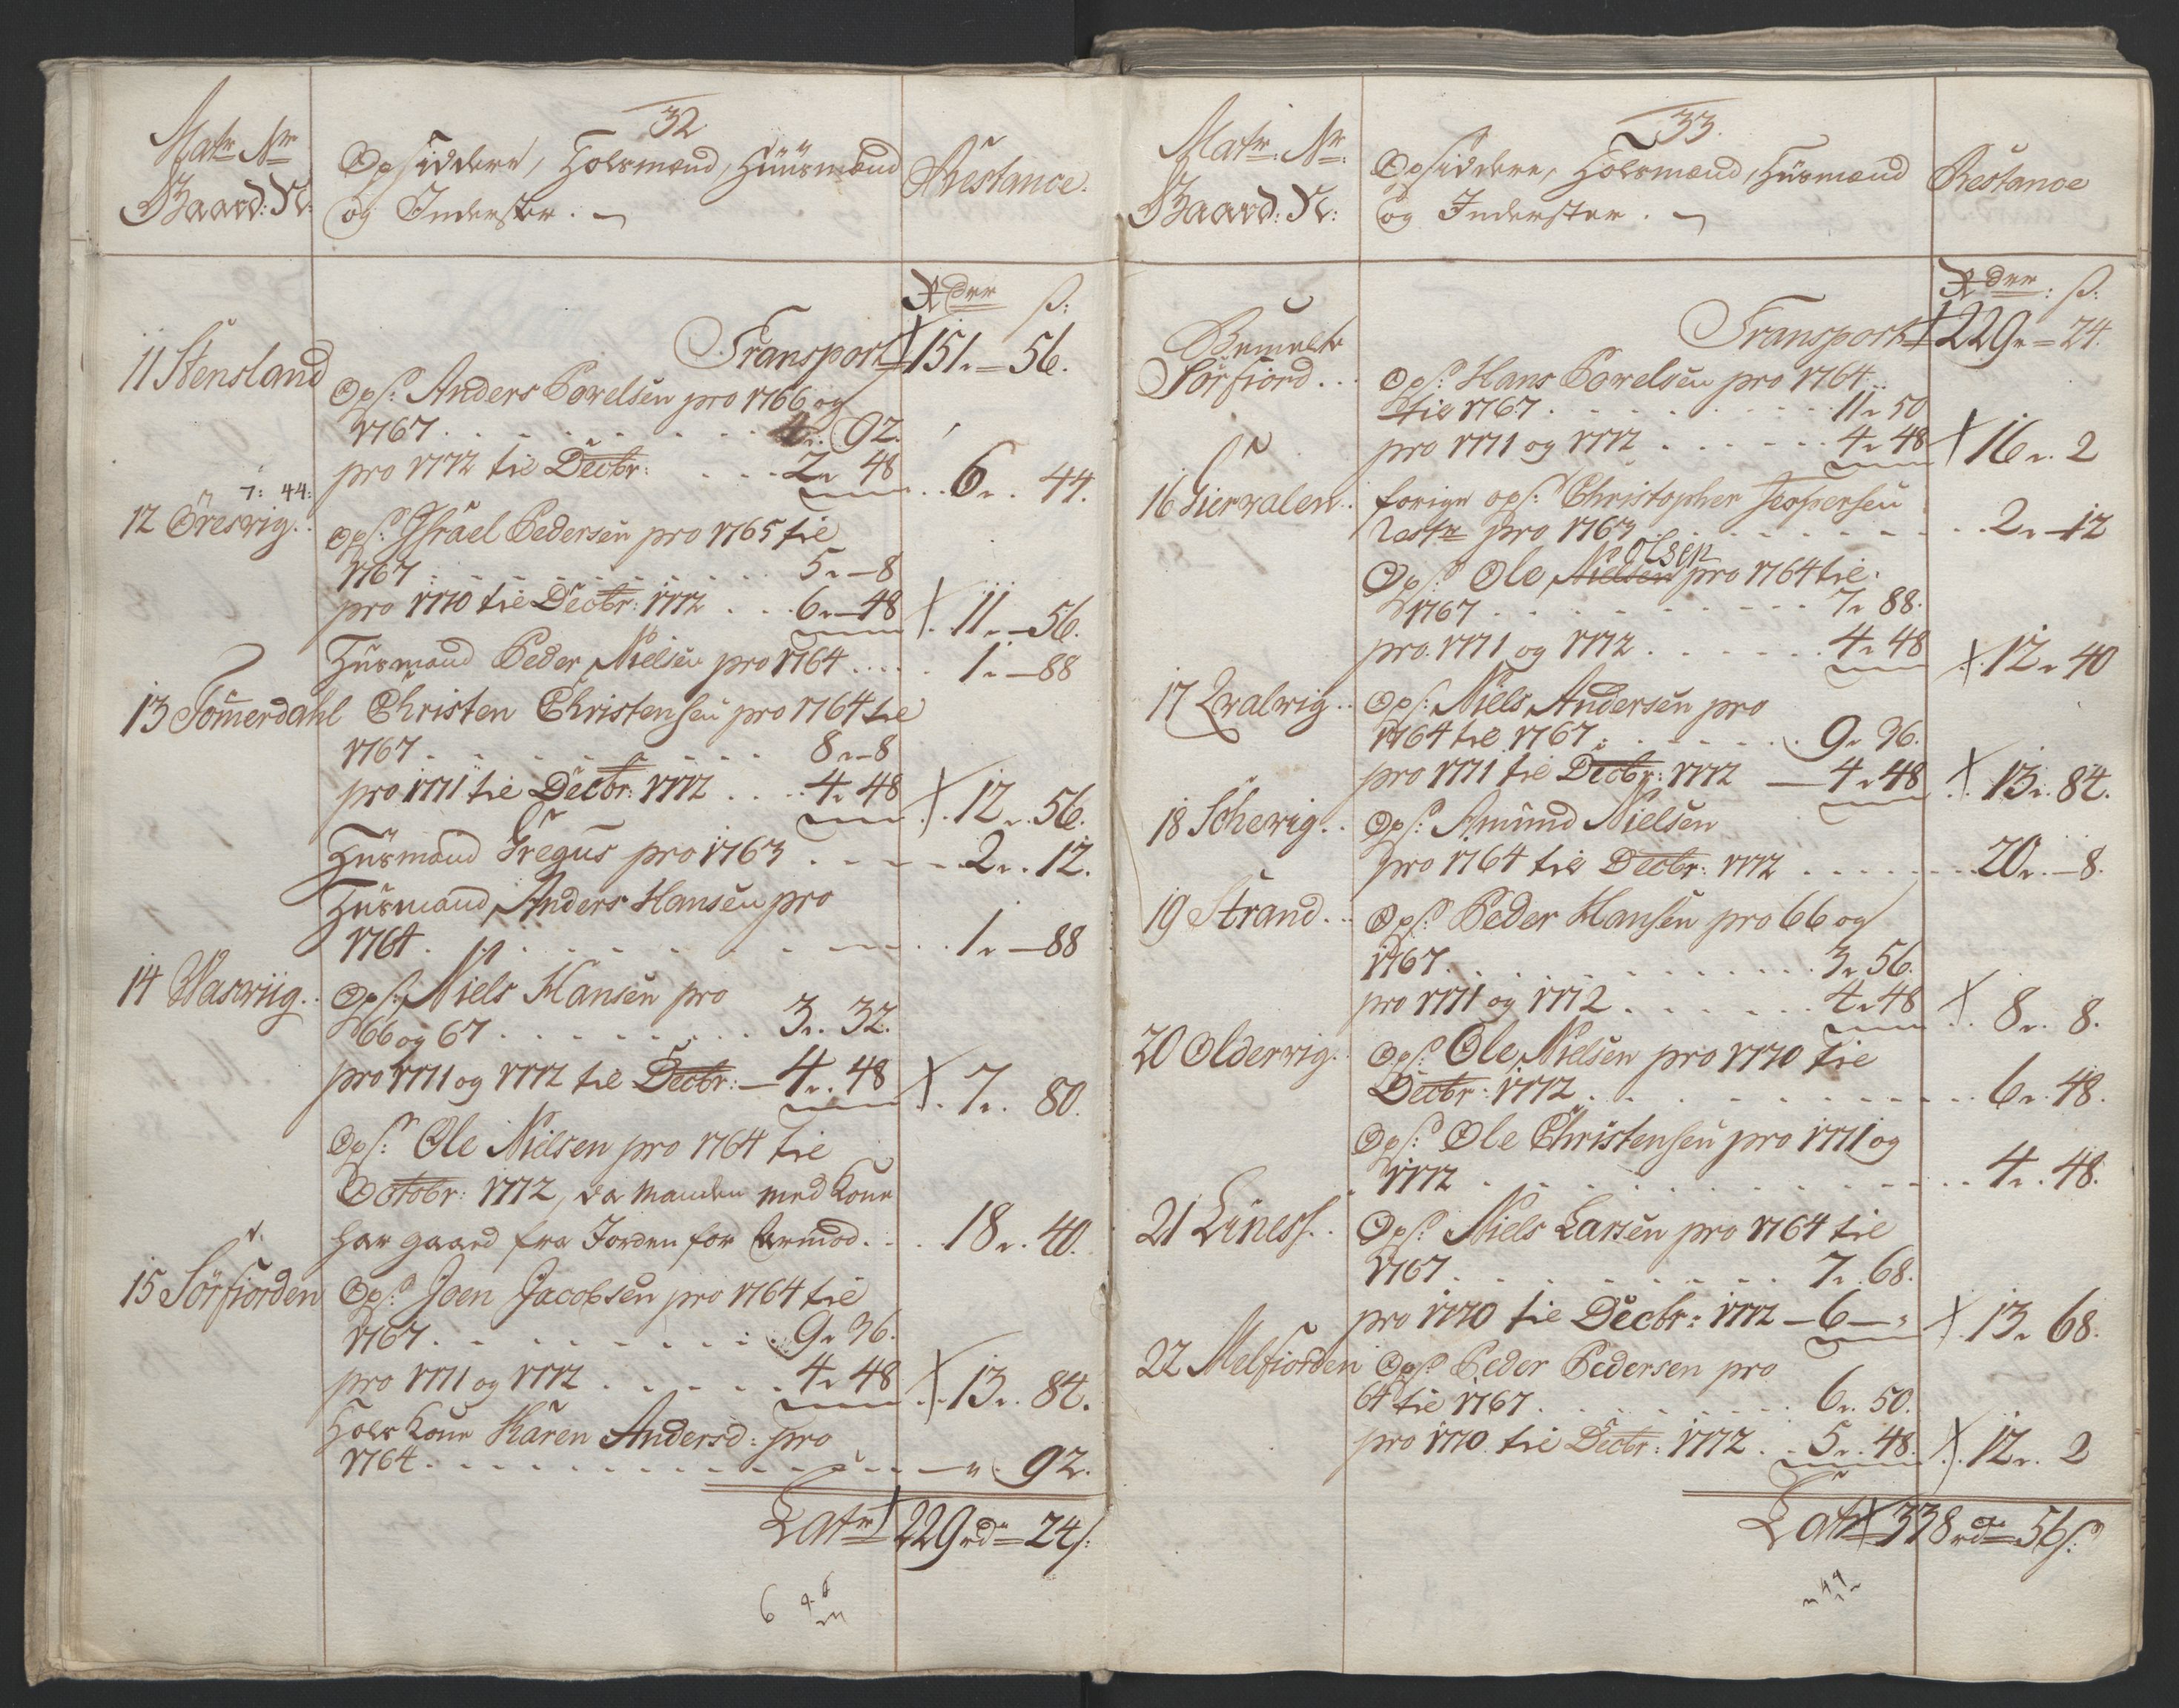 32
Matr Nr
Gaard: N:
Opsiddere, Holsmænd, Huusmænd
og Inderster.
Restance.
Rdr ß:
Transport 151 „ 56.
11 Stensland
Ops: Anders Povelsen pro 1766 og
1767 . . . 4 „ 92.
pro 1772 til Decbr: . . . 2 „ 48 . . 6 „ 44.
7: 44:
12 Öresvig . .
Ops: Israel Pedersen pro 1765 til
1767 . . . 5 „ 8
pro 1770 til Decbr: 1772 . . . 6 „ 48 11 „ 56.
Husmand Peder Nielsen pro 1764 . . . 1 „ 88
13 Tömerdahl Christen Christensen pro 1764 til
1767 . . . 8 „ 8
pro 1771 til Decbr: 1772 . . . 4 „ 48 12 „ 56.
Husmand Gregus pro 1763 . . . 2 „ 12.
Husmand Anders Hansen pro
1764 . . . 1 „ 88
14 Wasviig . .
Ops: Niels Hansen pro
66 og 67 . . . 3 „ 32.
pro 1771 og 1772 til Decbr: 4 „ 48 7 „ 80.
Ops: Ole Nielsen pro 1764 til
Octobr: 1772, da Manden med Kone
har gaaed fra Jorden for Armod . . 18 „ 40.
15 Sörfiorden Ops: Joen Jacobsen pro 1764 til
1767 . . . 9 „ 36.
pro 1771 og 1772 . . . 4 „ 48 13 „ 84.
Hols Kone Karen Andersd: pro
1764 . . . „ 92.
Latr 229 rd 24 ß:
6 4 6
33.
Matr: Nr:
Gaard: N:
Opsiddere, Holsmænd, Husmænd
og Inderster.
Restance
Rdr: ß:
Transport 229 „ 24.
Bemelte
Sörfiord . . . Ops: Hans Povelsen pro 1764
til 1767 . . . 11 „ 50
pro 1771 og 1772 . . . 4 „ 48 16 „ 2
16 Kiervalen . . forige ops: Christopher Jespersen
Restr pro 1763 . . . 2 „ 12
Ops: Ole Nielsen Olsen pro 1764 til
1767 . . . 7 „ 88.
pro 1771 og 1772 . . . 4 „ 48 12 „ 40
17 Qvalvig . . Ops: Niels Andersen pro
1764 til 1767 . . . 9 „ 36.
pro 1771 til Decbr: 1772 4 „ 48 13 „ 84.
18 Schevig . . Ops: Amund Nielsen
pro 1764 til Decbr: 1772 . . . 20 „ 8.
19 Strand . . Ops: Peder Hansen pro 66 og
1767 . . . 3 „ 56.
pro 1771 og 1772 . . . 4 „ 48 8 „ 8.
20 Oldervig . . Ops: Ole Nielsen pro 1770 til
Decbr: 1772 . . . 6 „ 48.
Ops: Ole Christensen pro 1771 og
1772 . . . 4 „ 48.
21 Lÿness . . Ops: Niels Larsen pro 1764 til
1767 . . . 7 „ 68.
pro 1770 til Decbr: 1772 6 „ 13 „ 68.
22 Melfiorden Ops: Peder Pedersen pro
64 til 1767 . . . 6 „ 50.
pro 1770 til Decbr: 1772 . . 5 „ 48. 12 „ 2
Latr 338 rd 56 ß:
44